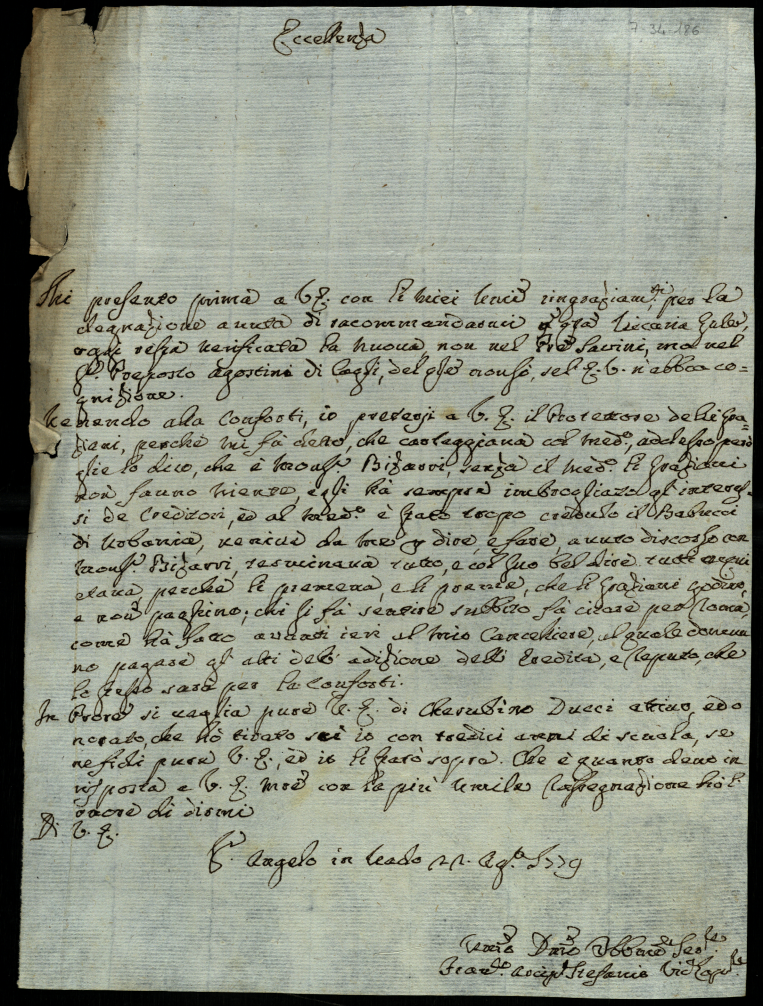 7.34.186
Eccellenza
Mi presento prima a V.E. con li miei umi ringraziam.ti per la
degnazione avuta di racommandarmi
resta verificata la nuova non nel Pre Savini, ma nel
S.r Preposto Agostini di Cagli, del qle monsi, se l'E.V. n'abbia co=
gnizione.
Venendo alla Conforti, io pretesi a V.E. il Protettore delli Gra=
ziani, perche mi fù detto, che carteggiava col med.o, adesso però
glie lo dico, che è Monsr Bizarri, senza il med.o li Graziani
non fanno niente, egli hà sempre imbrogliato gl'interes=
si de Creditori, ed al med.o è stato tropo creduto il Babucci
di Urbania, veniva da me p dire, e fare, avuto discorso con
Monsr Bizarri, terminava tutto, e col suo bel dire tutti
etava, perche li premeva, e li preme, che li Graziani godino,
e non paghino; chi si fà sentire subbito fà citare per Roma,
come hà fatto avanti ieri al mio Cancelliere, al quale doveva
no pagare gl'atti dell' adizione dell' Eredità, e reputo, che
lo stesso sarà per la Conforti.
In Prore si vaglia pure V.E. di Cherubino Ducci attivo, ed o
norato, che hò tirato sù io con tredici anni di scuola, se
ne fidi pure V.E., ed io li starò sopra. Che è quanto devo in
risposta a V.E. mre con la più umile rassegnazione hò l'
onore di dirmi
Di V.E.
S. Angelo in Vado 22. Ag.to 1779
Umo Dmo Obbmo Ser.re
Fran.co Stefanio Vic.o Cap.re